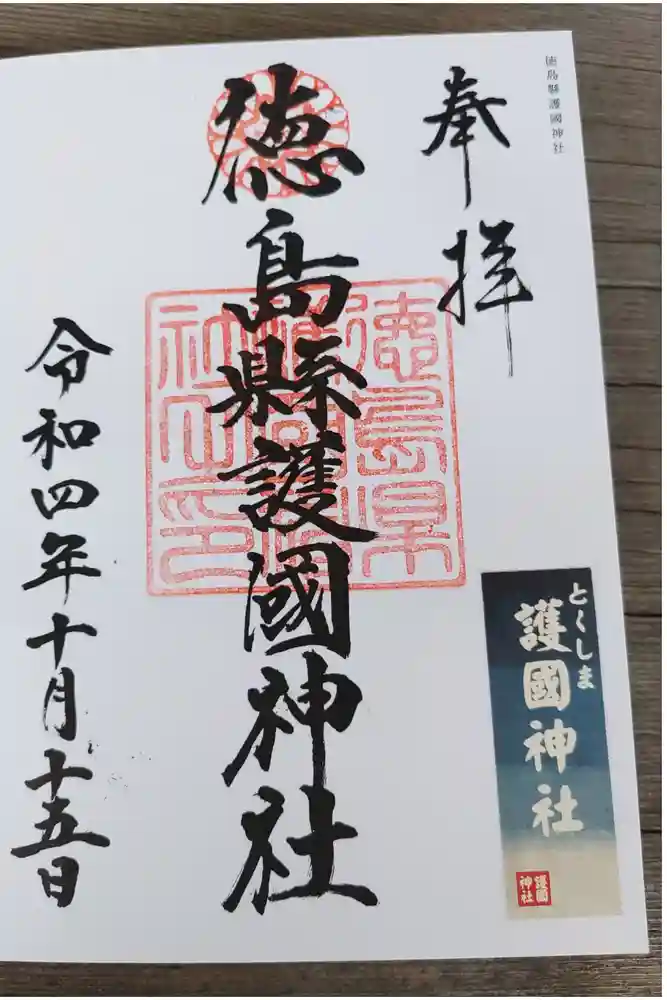 徳島縣護國神社
奉拝
徳島縣護國神社
徳島県
護国神
社之印
令和四年十月十五日
とくしま
護國神社
護國
神社